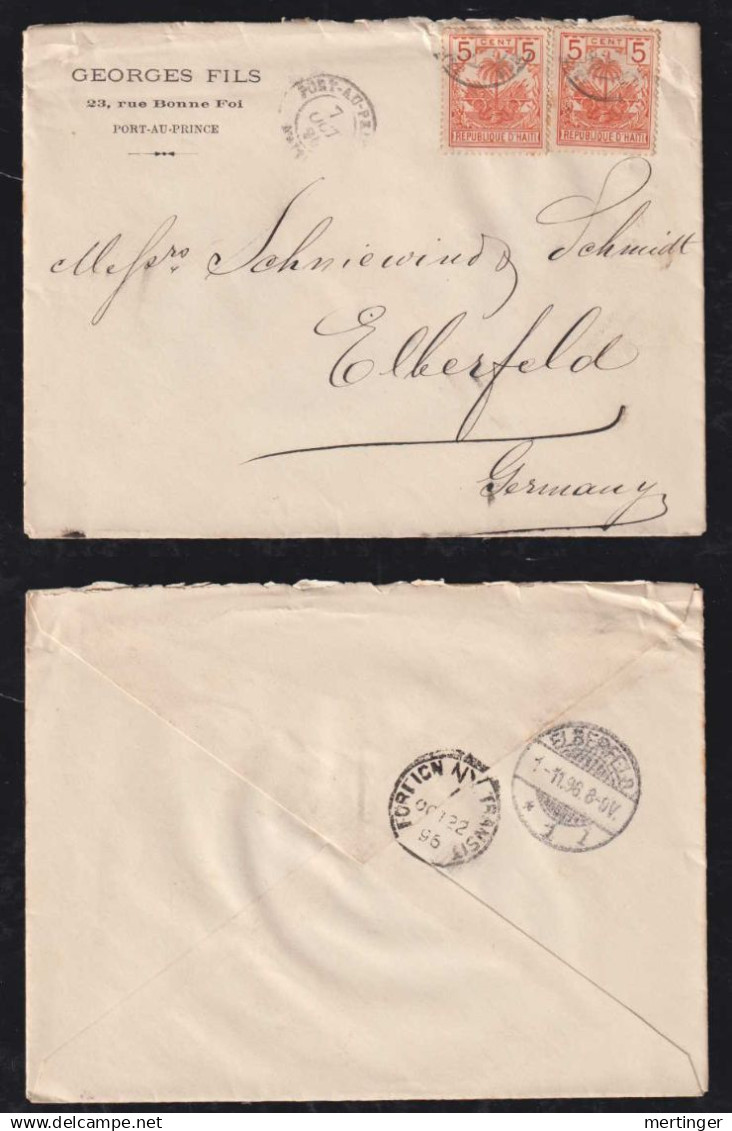 GEORGES FILS
23, rue Bonne Foi
PORT-AU-PRINCE
PORT-AU-PRCE
7
OCT
5 CENT 5
REPUBLIQUE D'HAITI
5 CENT 5
REPUBLIQUE D'HAITI
Messrs Schniewind & Schmidt
Elberfeld
Germany
FOREIGN NY TRANSIT
OCT 22
96
ELBERFELD
1-11.96.8-9V.
* 1 1
mertinger